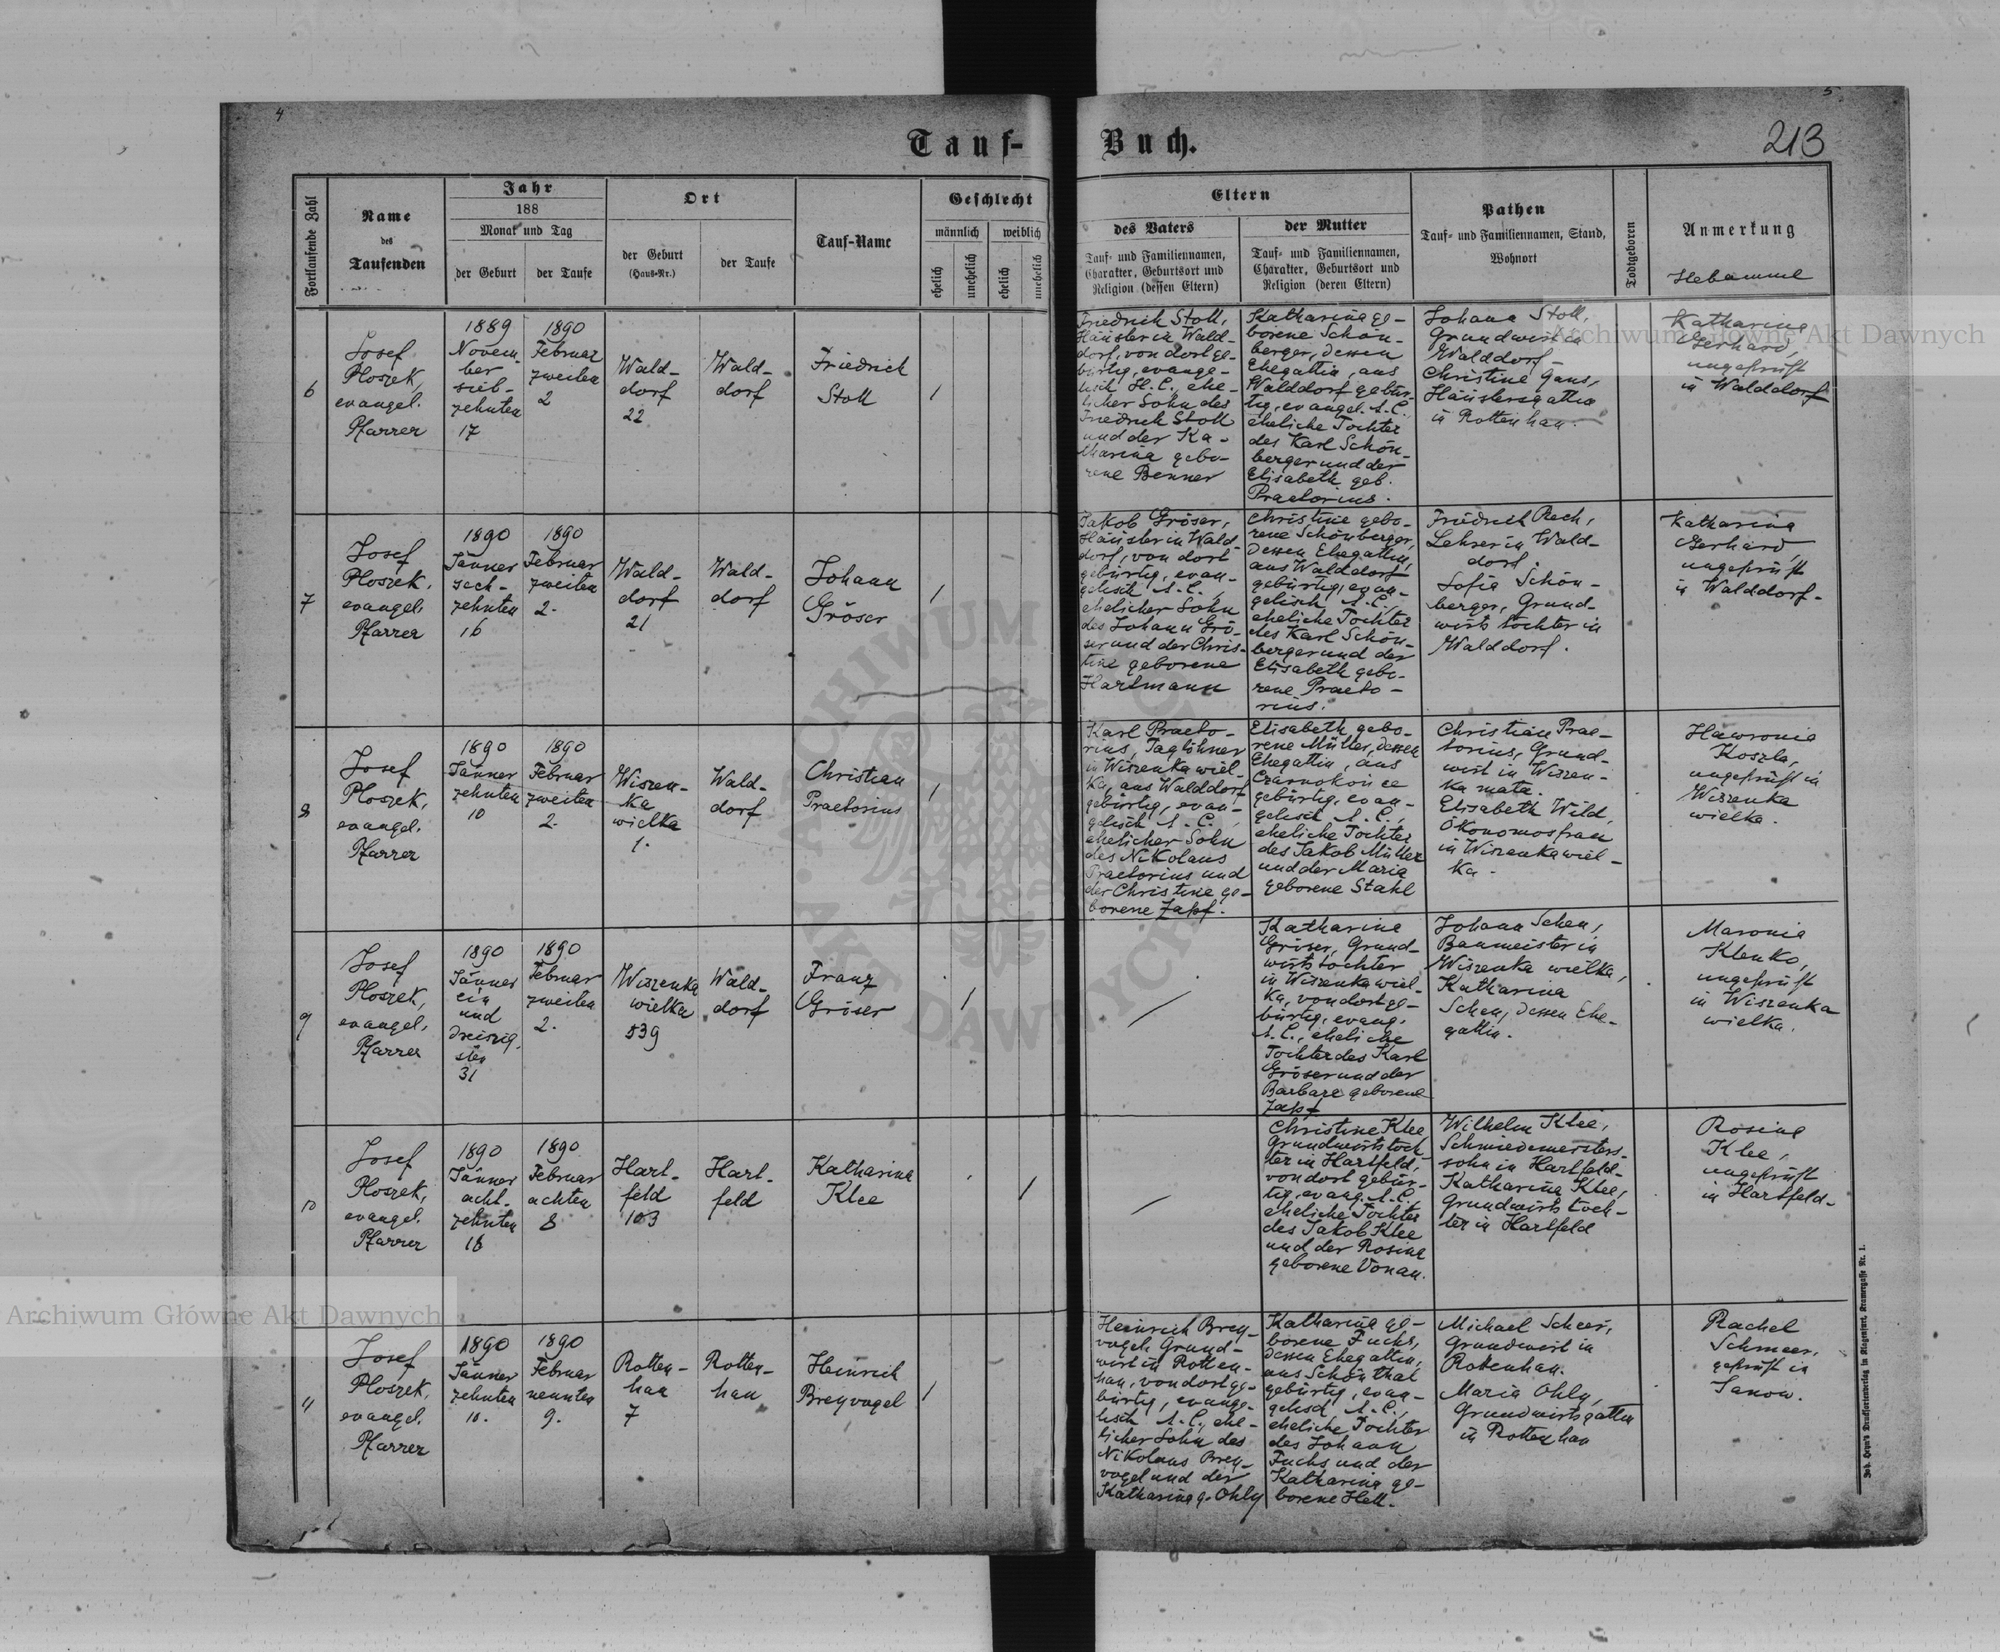 4
5
Tauf-Buch.
213
Fortlaufende Zahl
Name
des
Taufenden
Jahr
188
Monat und Tag
der Geburt
der Taufe
Ort
der Geburt
(Haus-Nr.)
der Taufe
Tauf-Name
Geschlecht
männlich
weiblich
ehelich
unehelich
ehelich
unehelich
Eltern
des Vaters
Tauf- und Familiennamen,
Charakter, Geburtsort und
Religion (dessen Eltern)
der Mutter
Tauf- und Familiennamen,
Charakter, Geburtsort und
Religion (deren Eltern)
Pathen
Tauf- und Familiennamen, Stand,
Wohnort
Todtgeboren
Anmerkung
Hebamme
6
Josef
Ploszek,
evangel.
Pfarrer
1889
Novem-
ber
sieb-
zehnten
17
1890
Februar
zweiten
2
Wald-
dorf
22
Wald-
dorf
Friedrich
Stoll
1
Friedrich Stoll,
Häusler in Wald-
dorf, von dort ge-
bürtig, evange-
lisch H.C., ehe-
licher Sohn des
Friedrich Stoll
und der Ka-
tharina gebo-
rene Benner
Katharina ge-
borene Schön-
berger, dessen
Ehegattin, aus
Walddorf gebür-
tig, evangel. A.C.
eheliche Tochter
des Karl Schön-
berger und der
Elisabeth geb.
Praetorius.
Johann Stoll,
Grundwirt in
Walddorf-
Christine Gans,
Häuslersgattin
in Rottenhan.
Katharina
Gerhard,
ungeprüft
in Walddorf
7
Josef
Ploszek,
evangel.
Pfarrer
1890
Jänner
sech-
zehnten
16
1890
Februar
zweiten
2.
Wald-
dorf
21
Wald-
dorf
Johann
Gröser
1
Jakob Gröser,
Häusler in Wald-
dorf, von dort
gebürtig, evan-
gelisch A.C.,
ehelicher Sohn
des Johann Grö-
ser und der Chris-
tine geborene
Hartmann
Christine gebo-
rene Schönberger,
dessen Ehegattin,
aus Walddorf
gebürtig, evan-
gelisch A.C.,
eheliche Tochter
des Karl Schön-
berger und der
Elisabeth gebo-
rene Praeto-
rius.
Friedrich Rech,
Lehrer in Wald-
dorf.
Sofia Schön-
berger, Grund-
wirtstochter in
Walddorf.
Katharina
Gerhard,
ungeprüft
in Walddorf.
8
Josef
Ploszek,
evangel.
Pfarrer
1890
Jänner
zehnten
10
1890
Februar
zweiten
2.
Wiszen-
ka
wielka
1.
Wald-
dorf
Christian
Praetorius
1
Karl Praeto-
rius, Taglöhner
in Wiszenka wiel-
ka, aus Walddorf
gebürtig, evan-
gelisch A.C.
ehelicher Sohn
des Nikolaus
Praetorius und
der Christine ge-
borene Zapf.
Elisabeth gebo-
rene Müller, dessen
Ehegattin, aus
Czarnokońce
gebürtig, evan-
gelisch A.C.,
eheliche Tochter
des Jakob Müller
und der Maria
geborene Stahl
Christian Prae-
torius, Grund-
wirt in Wiszen-
ka mała.
Elisabeth Wild,
Ökonomosfrau
in Wiszenka wiel-
ka.
Hawronia
Koszla,
ungeprüft in
Wiszenka
wielka.
9
Josef
Ploszek,
evangel.
Pfarrer
1890
Jänner
ein
und
dreiszig-
sten
31
1890
Februar
zweiten
2.
Wiszenka
wielka
539
Wald-
dorf
Franz
Gröser
1
Katharina
Gröser, Grund-
wirtstochter
in Wiszenka wiel-
ka, von dort ge-
bürtig, evang.
A.C., eheliche
Tochter des Karl
Gröser und der
Barbara geborene
Zapf
Johann Schen,
Baumeister in
Wiszenka wielka,
Katharina
Schen, dessen Ehe-
gattin.
Maronia
Klenko,
ungeprüft
in Wiszenka
wielka.
10
Josef
Ploszek,
evangel.
Pfarrer
1890
Jänner
acht-
zehnten
18
1890
Februar
achten
8
Hart-
feld
103
Hart-
feld
Katharina
Klee
1
Christine Klee
Grundwirtstoch
ter in Hartfeld,
von dort gebür-
tig, evang. A.C.,
eheliche Tochter
des Jakob Klee
und der Rosina
geborene Vonau.
Wilhelm Klee,
Schmiedemeisters-
sohn in Hartfeld-
Katharina Klee,
Grundwirtstoch-
ter in Hartfeld
Rosina
Klee,
ungeprüft
in Hartfeld-
11
Josef
Ploszek,
evangel.
Pfarrer
1890
Jänner
zehnten
10.
1890
Februar
neunten
9.
Rotten-
han
7
Rotten-
han
Heinrich
Breyvogel
1
Heinrich Brey-
vogel, Grund-
wirt in Rotten-
han, von dort ge-
bürtig, evange-
lisch A.C., ehe-
licher Sohn des
Nikolaus Brey-
vogel und der
Katharina g. Ohly
Katharina ge-
borene Fuchs,
dessen Ehegattin,
aus Schönthal
gebürtig, evan-
gelisch A.C.,
eheliche Tochter
des Johann
Fuchs und der
Katharina ge-
borene Hell.
Michael Scheer,
Grundwirt in
Rotenhan.
Maria Ohly,
Grundwirtsgattin
in Rottenhan
Rachel
Schmeer,
geprüft in
Janow.
Joh. Heyn's Drucksortenverlag in Klagenfurt, Kramergasse Nr. 1.
Archiwum Główne Akt Dawnych
Archiwum Główne Akt Dawnych
ARCHIWUM
AKT DAWNYCH